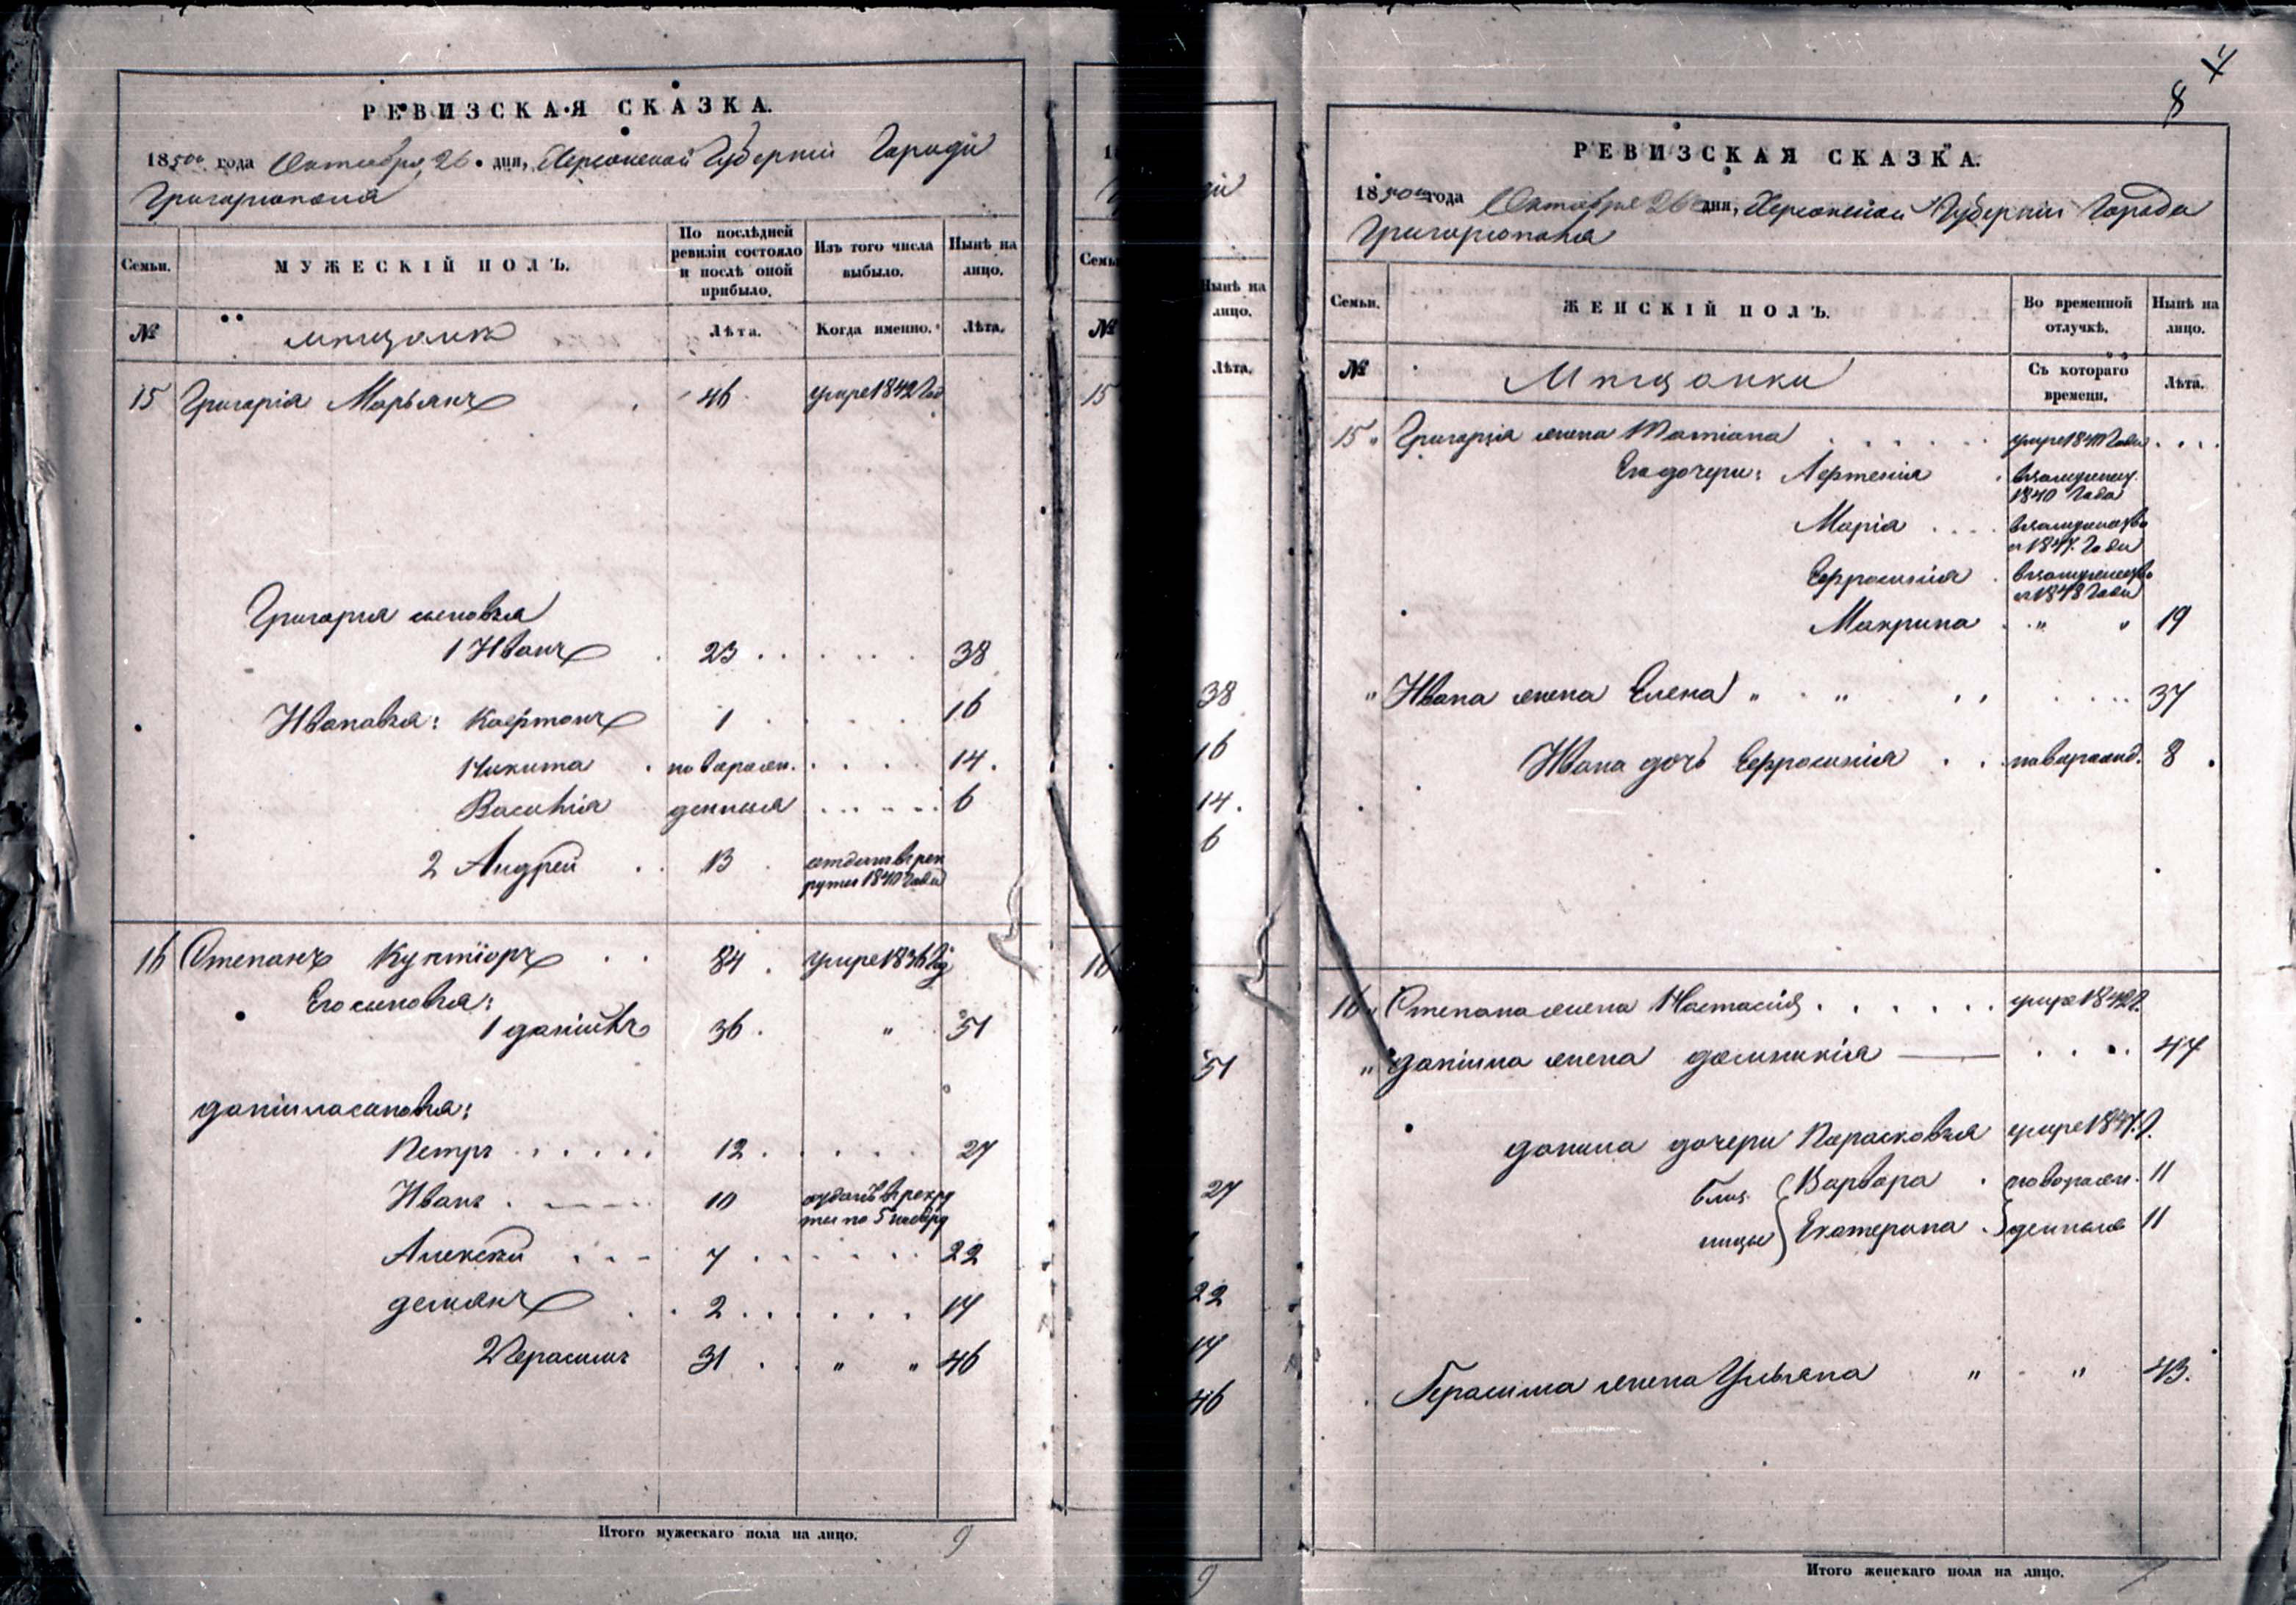 РЕВИЗСКАЯ СКАЗКА.
1850го года Октября 26 дня, Херсонской Губерніи Города
Григоріополя
Семьи.
МУЖЕСКІЙ ПОЛЪ.
По послѣдней ревизіи состояло и послѣ оной прибыло.
Изъ того числа выбыло.
Нынѣ на лицо.
№
мѣщане
Лѣта.
Когда именно.
Лѣта.
15 Григорій Марьянъ 46 умре 1842 год
Григорія сыновья
1 Иванъ 23 38
Ивановы: 1 16
Никита новорож. 14.
Василій денныя 6
2 Андрей 13 отданъ въ рек
руты 1840 года
16 Степанъ 84 умре 1836 год
Его сыновья:
1 Даніилъ 36 " 51
Даніила сыновья:
Петръ 12 27
Иванъ 10 отданъ въ рекру
ты по 5 набору
Алексѣй 7 22
Демянъ 2 17
2 Герасимъ 31 " " 46
Итого мужескаго пола на лицо. 9
15
16
Нынѣ на лицо.
Лѣта.
38
16
14.
6
51
27
22
17
46
9
8
РЕВИЗСКАЯ СКАЗКА.
1850го года Октября 26 дня, Херсонской Губерніи Города
Григоріополя
Семьи.
ЖЕНСКІЙ ПОЛЪ.
Во временной отлучкѣ.
Нынѣ на лицо.
№
Мѣщанки
Съ котораго времени.
Лѣта.
15 Григорія жена умре
Его дочери: въ замужест.
1840 года
Марія въ замужествѣ
съ 1847 года
Ефросинія въ замужествѣ
съ 1848 года
Макрина " " 19
" Ивана жена Елена " " 37
Ивана дочь Ефросинія новорожд. 8
16 Степана жена Настасія умре 1842 г.
" Даніила жена Домникія 47
Данила дочери Парасковія умре 1847 г.
близ Варвара новорож. 11
ницы Екатерина денныя 11
Герасима жена Ульяна " " 43.
Итого женскаго пола на лицо. 7